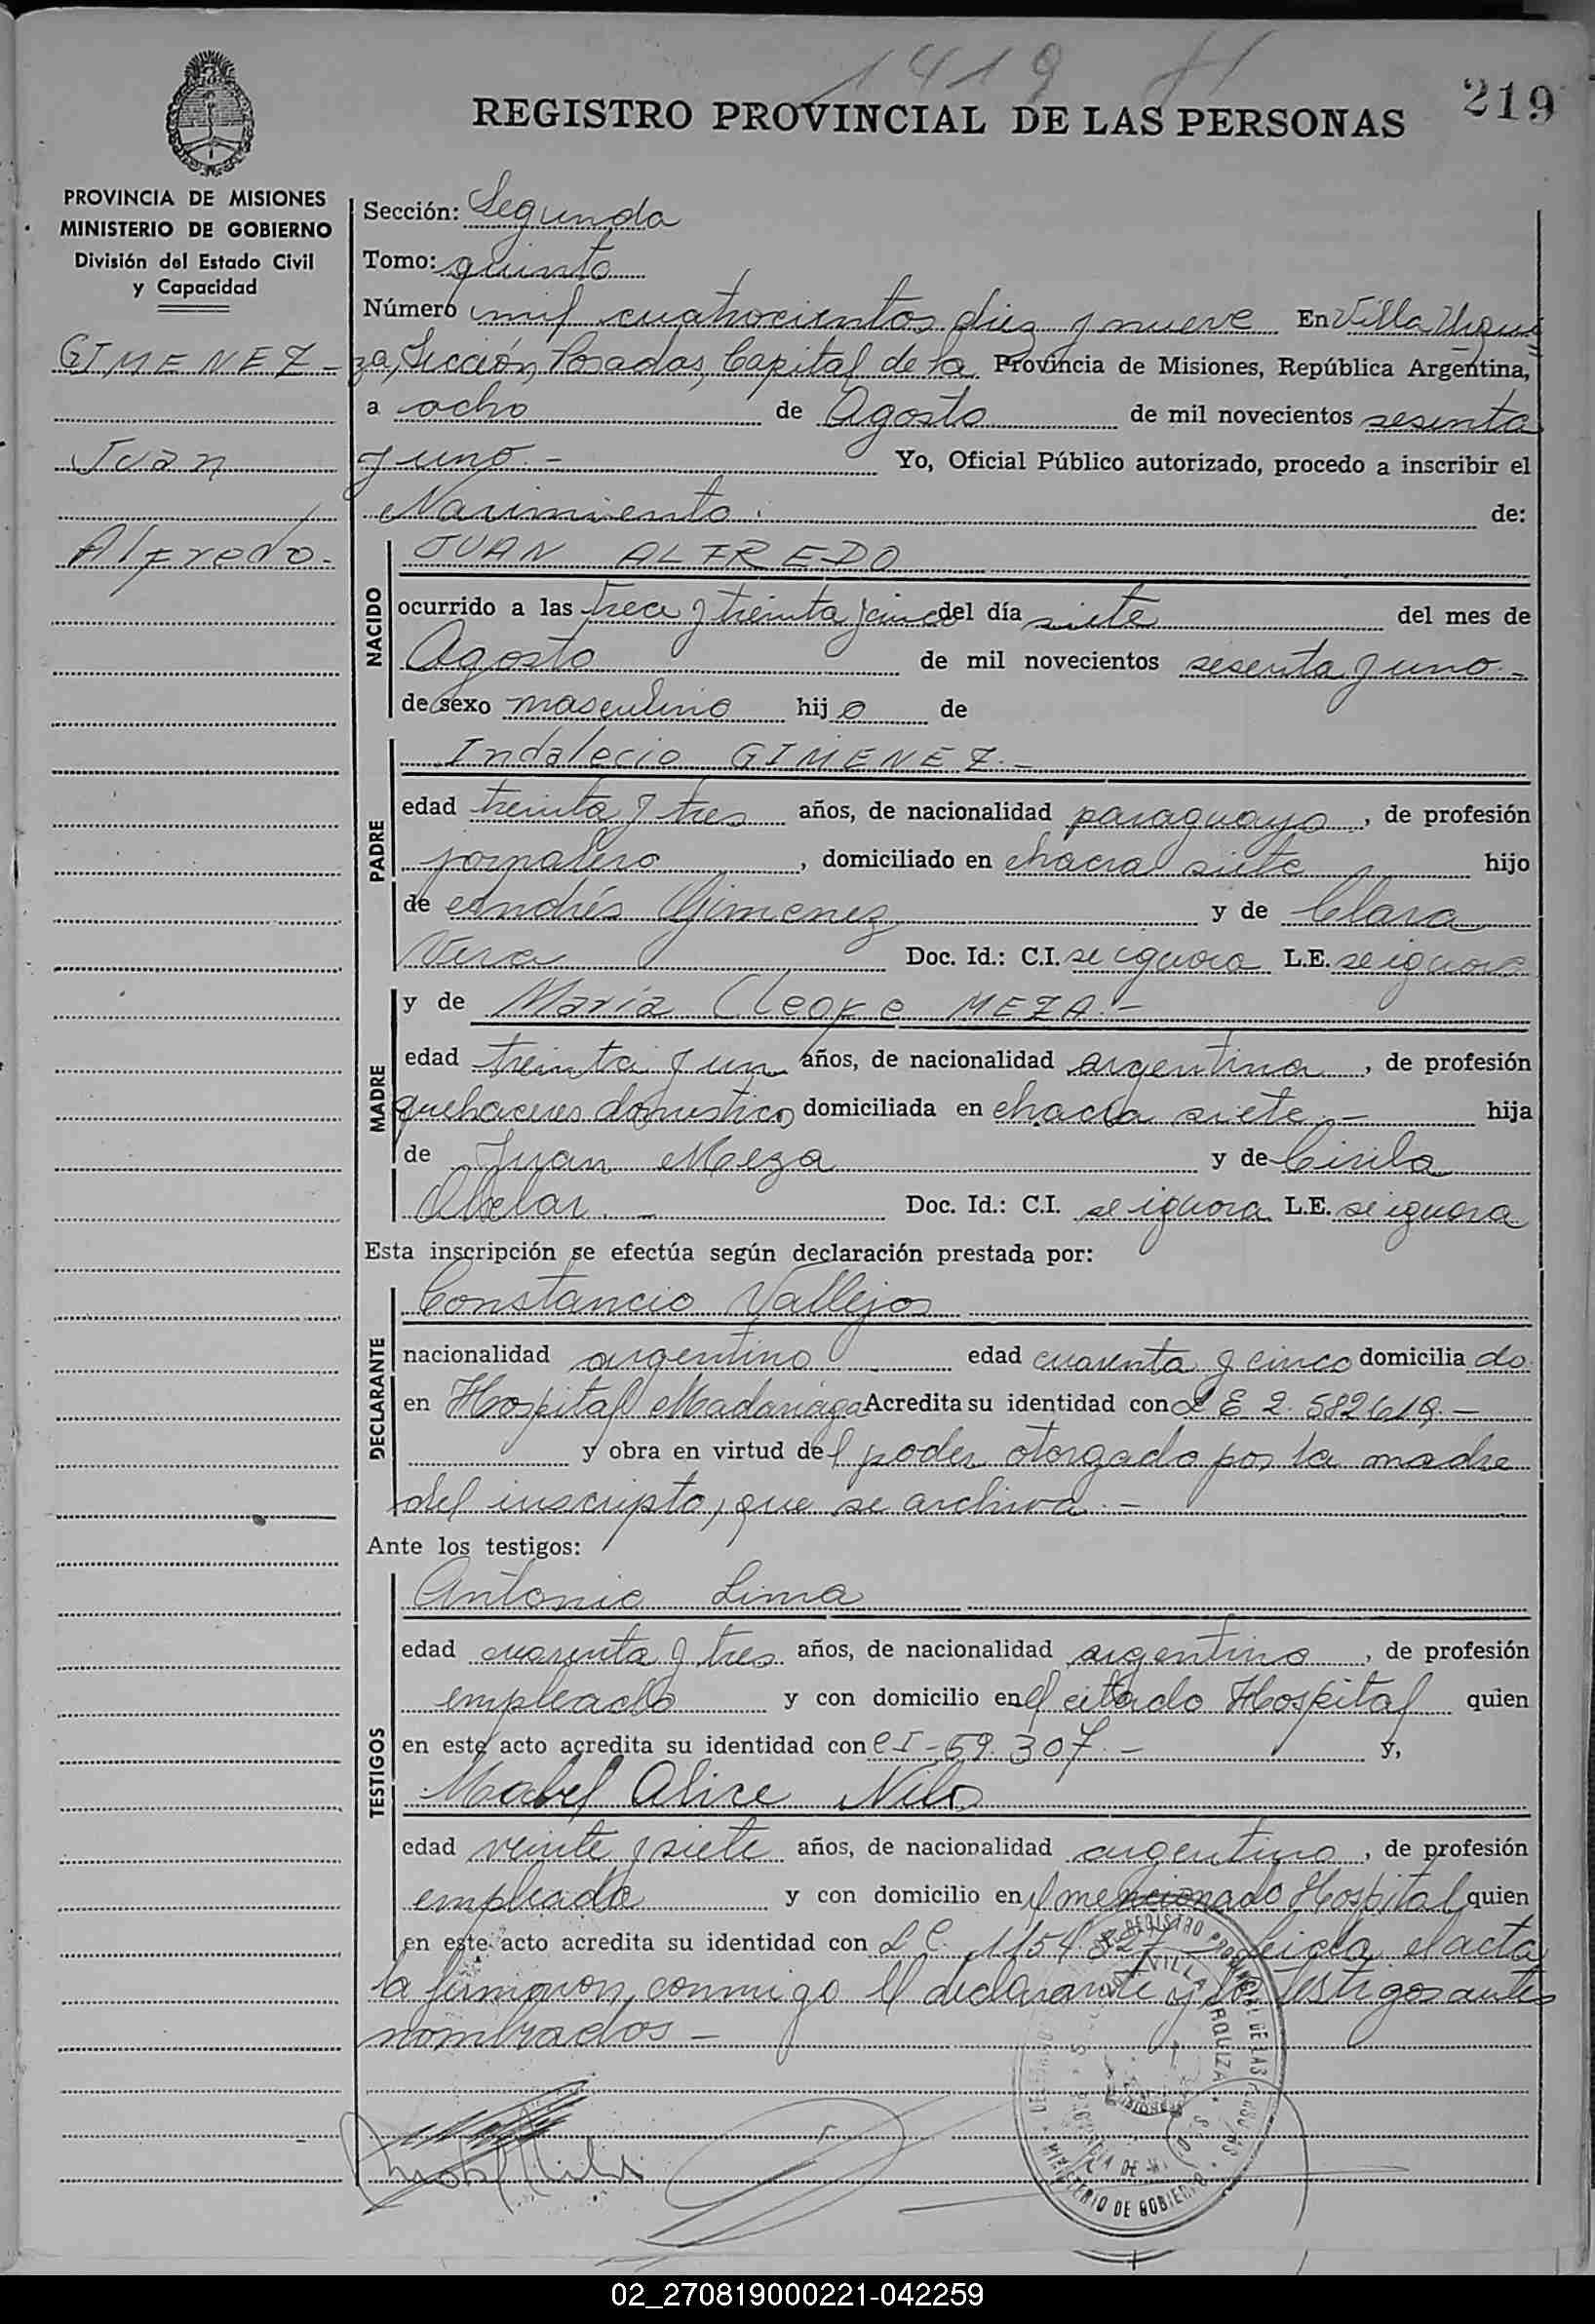 1419
219
REGISTRO PROVINCIAL DE LAS PERSONAS
PROVINCIA DE MISIONES
MINISTERIO DE GOBIERNO
División del Estado Civil
y Capacidad
GIMENEZ -
Juan
Alfredo.-
Sección: Segunda
Tomo: quinto
Número mil cuatrocientos diez y nueve En Villa Urqui
za, Sección, Posadas, Capital de la Provincia de Misiones, República Argentina,
a ocho de Agosto de mil novecientos sesenta
y uno.- Yo, Oficial Público autorizado, procedo a inscribir el
Nacimiento. de:
NACIDO
JUAN ALFREDO
ocurrido a las trece y treinta y cinco del día siete del mes de
Agosto de mil novecientos sesenta y uno.-
de sexo masculino hijo de
PADRE
Indalecio GIMENEZ.-
edad treinta y tres años, de nacionalidad paraguayo, de profesión
jornalero, domiciliado en chacra siete hijo
de Andrés Gimenez y de Clara
Vera Doc. Id.: C.I. se ignora L.E. se ignora
MADRE
y de María Cleofe MEZA.-
edad treinta y un años, de nacionalidad argentina, de profesión
quehaceres domestico, domiciliada en chacra siete.- hija
de Juan Meza y de Cirila
Doc. Id.: C.I. se ignora L.E. se ignora
Esta inscripción se efectúa según declaración prestada por:
DECLARANTE
Constancio Vallejos
nacionalidad argentino edad cuarenta y cinco domiciliado
en Hospital Madariaga Acredita su identidad con L E 2.582619.-
y obra en virtud del poder otorgado por la madre
del inscripto, que se archiva.-
Ante los testigos:
TESTIGOS
Antonio Lima
edad cuarenta y tres años, de nacionalidad argentino, de profesión
empleado y con domicilio en el citado Hospital quien
en este acto acredita su identidad con CI-59.307.- y,
Mabel Alice Nilo
edad veinte y siete años, de nacionalidad argentina, de profesión
empleada y con domicilio en el mencionado Hospital quien
en este acto acredita su identidad con L C Leida el acta
la firmaron, conmigo el declarante y los testigos antes
nombrados -
REGISTRO PROVINCIAL DE LAS PERSONAS
VILLA URQUIZA
MINISTERIO DE GOBIERNO
02_270819000221-042259